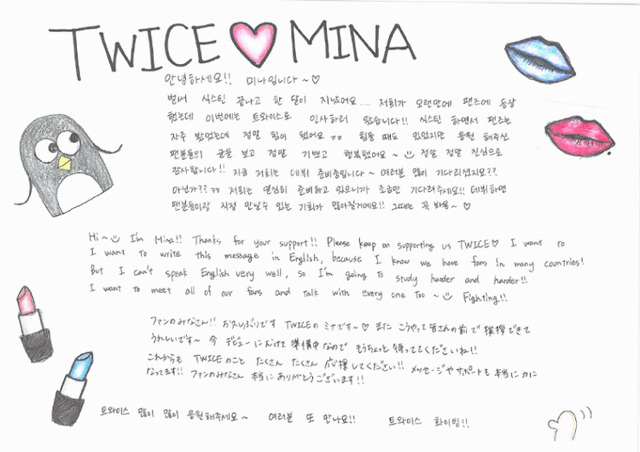 TWICE♡MINA
안녕하세요!! 미나입니다~♡
벌써 식스틴 끝나고 한 달이 지났어요.... 저희가 오랜만에 팬즈에 등장
했는데 이번에는 트와이스로 인사하러 왔습니다!! 식스틴 하면서 팬즈는
자주 봤었는데 정말 힘이 됐어요 ㅠㅠ 힘들 때도 있었지만 응원 해주신
팬분들의 글을 보고 정말 기쁘고 행복했어요~ 정말 정말 진심으로
감사합니다!! 지금 저희는 데뷔 준비중입니다~ 여러분 많이 기다리셨지요??
아닌가?? ㅋㅋ 저희는 열심히 준비하고 있으니까 조금만 기다려주세요!! 데뷔하면
팬분들이랑 직접 만날수 있는 기회가 많아질거에요!! 그때는 꼭 봐용~♡
Hi~ I'm Mina!! Thanks for your support!! Please keep on supporting us TWICE♡ I want to
I want to write this message in English, because I know we have fans in many countries!
But I can't speak English very well, so I'm going to study harder and harder!!
I want to meet all of our fans and talk with every one too~ Fighting!!
ファンのみなさん!! お久しぶりです TWICEのミナです~♡ またこうやって皆さんの前で挨拶できて
うれしいです~ 今 デビューにむけて準備中なので もうちょっと待っててくださいね!!
これからも TWICEのこと たくさん たくさん 応援してください!! メッセージやサポートも 本当に力に
なってます!! ファンのみなさん 本当にありがとうございます!!
트와이스 많이 많이 응원해주세요~ 여러분 또 만나요!! 트와이스 화이팅!!